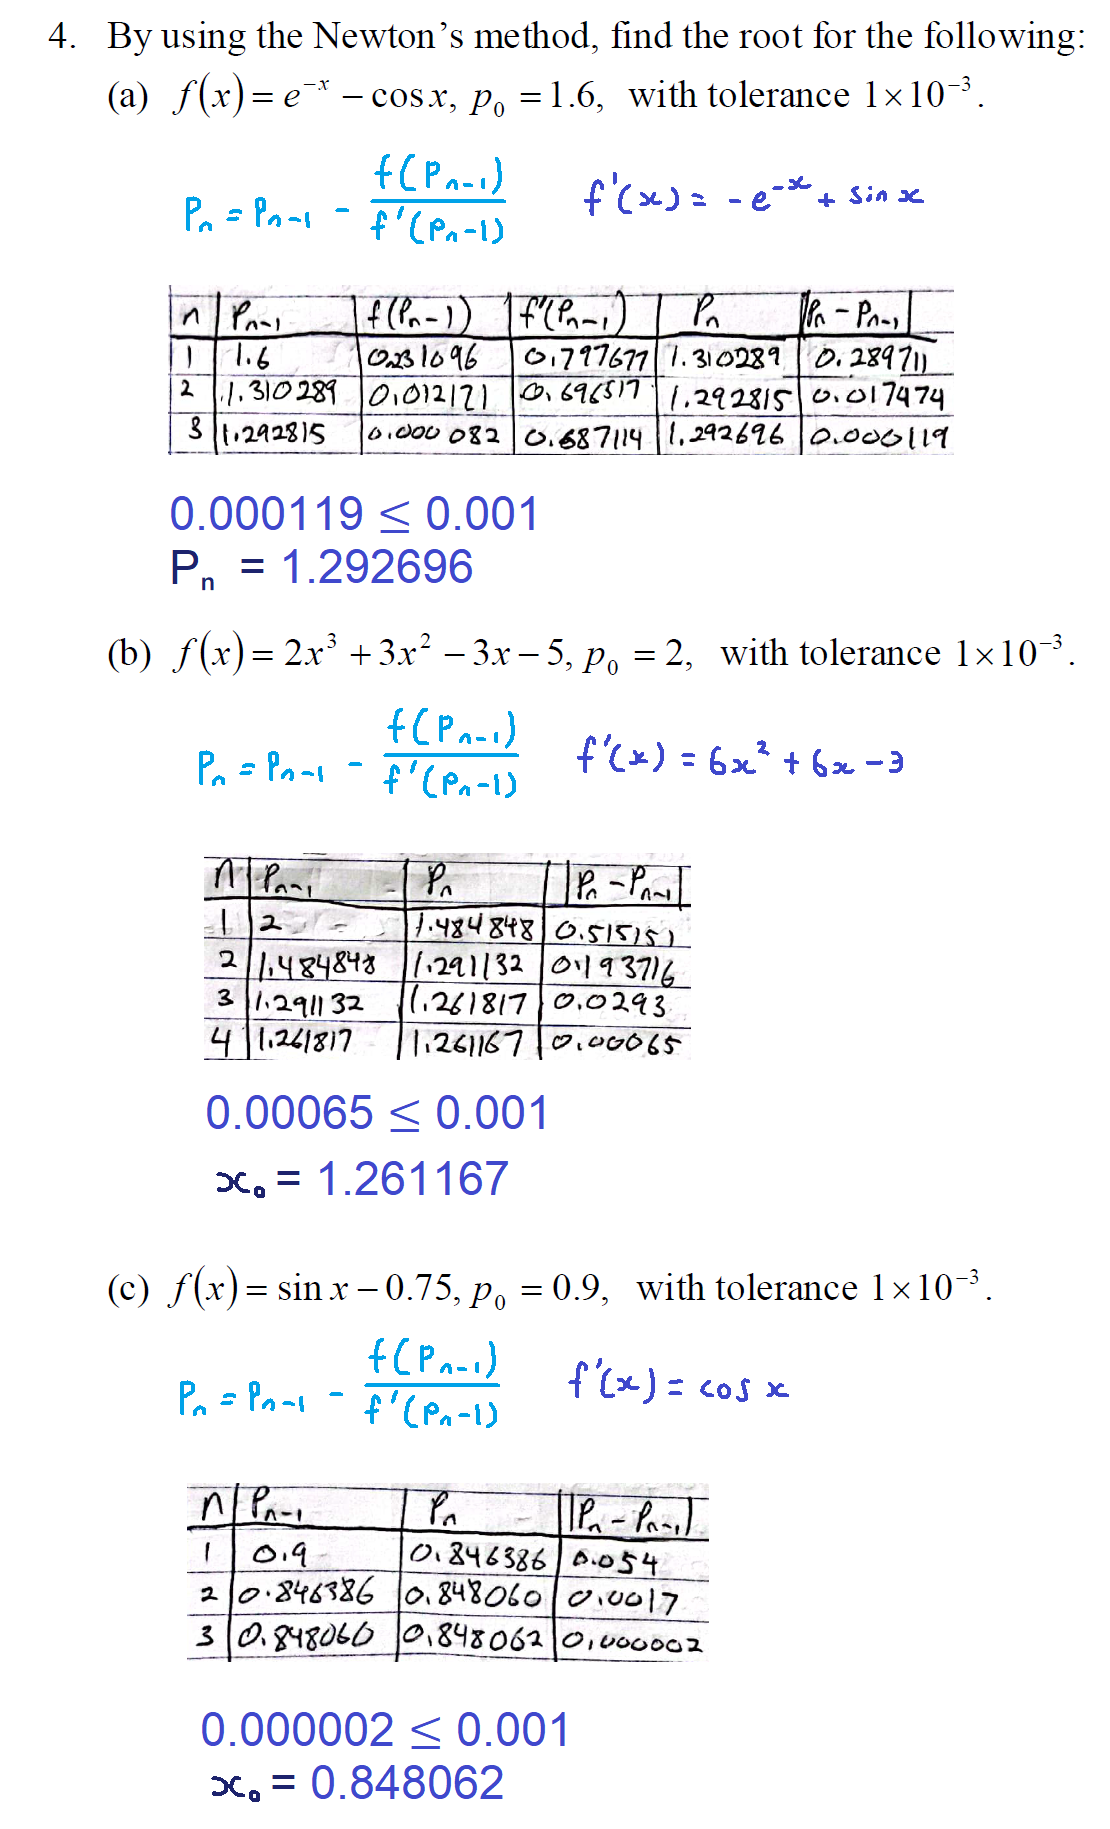 4. By using the Newton's method, find the root for the following:
(a) f(x) = e^{-x} − cos x, p₀ = 1.6, with tolerance 1×10⁻³.
Pₙ = Pₙ₋₁ − f(Pₙ₋₁) / f'(Pₙ₋₁) f'(x) = -e^{-x} + sin x
n Pₙ₋₁ f(Pₙ₋₁) f'(Pₙ₋₁) Pₙ |Pₙ − Pₙ₋₁|
1 1.6 0.231096 0.797677 1.310289 0.289711
2 1.310289 0.012171 0.696517 1.292815 0.017474
3 1.292815 0.000082 0.687114 1.292696 0.000119
0.000119 ≤ 0.001
Pₙ = 1.292696
(b) f(x) = 2x³ + 3x² − 3x − 5, p₀ = 2, with tolerance 1×10⁻³.
Pₙ = Pₙ₋₁ − f(Pₙ₋₁) / f'(Pₙ₋₁) f'(x) = 6x² + 6x − 3
n Pₙ₋₁ Pₙ |Pₙ − Pₙ₋₁|
1 2 1.484848 0.515151
2 1.484848 1.291132 0.193716
3 1.291132 1.261817 0.0293
4 1.261817 1.261167 0.00065
0.00065 ≤ 0.001
x₀ = 1.261167
(c) f(x) = sin x − 0.75, p₀ = 0.9, with tolerance 1×10⁻³.
Pₙ = Pₙ₋₁ − f(Pₙ₋₁) / f'(Pₙ₋₁) f'(x) = cos x
n Pₙ₋₁ Pₙ |Pₙ − Pₙ₋₁|
1 0.9 0.846386 0.054
2 0.846386 0.848060 0.0017
3 0.848060 0.848062 0.000002
0.000002 ≤ 0.001
x₀ = 0.848062